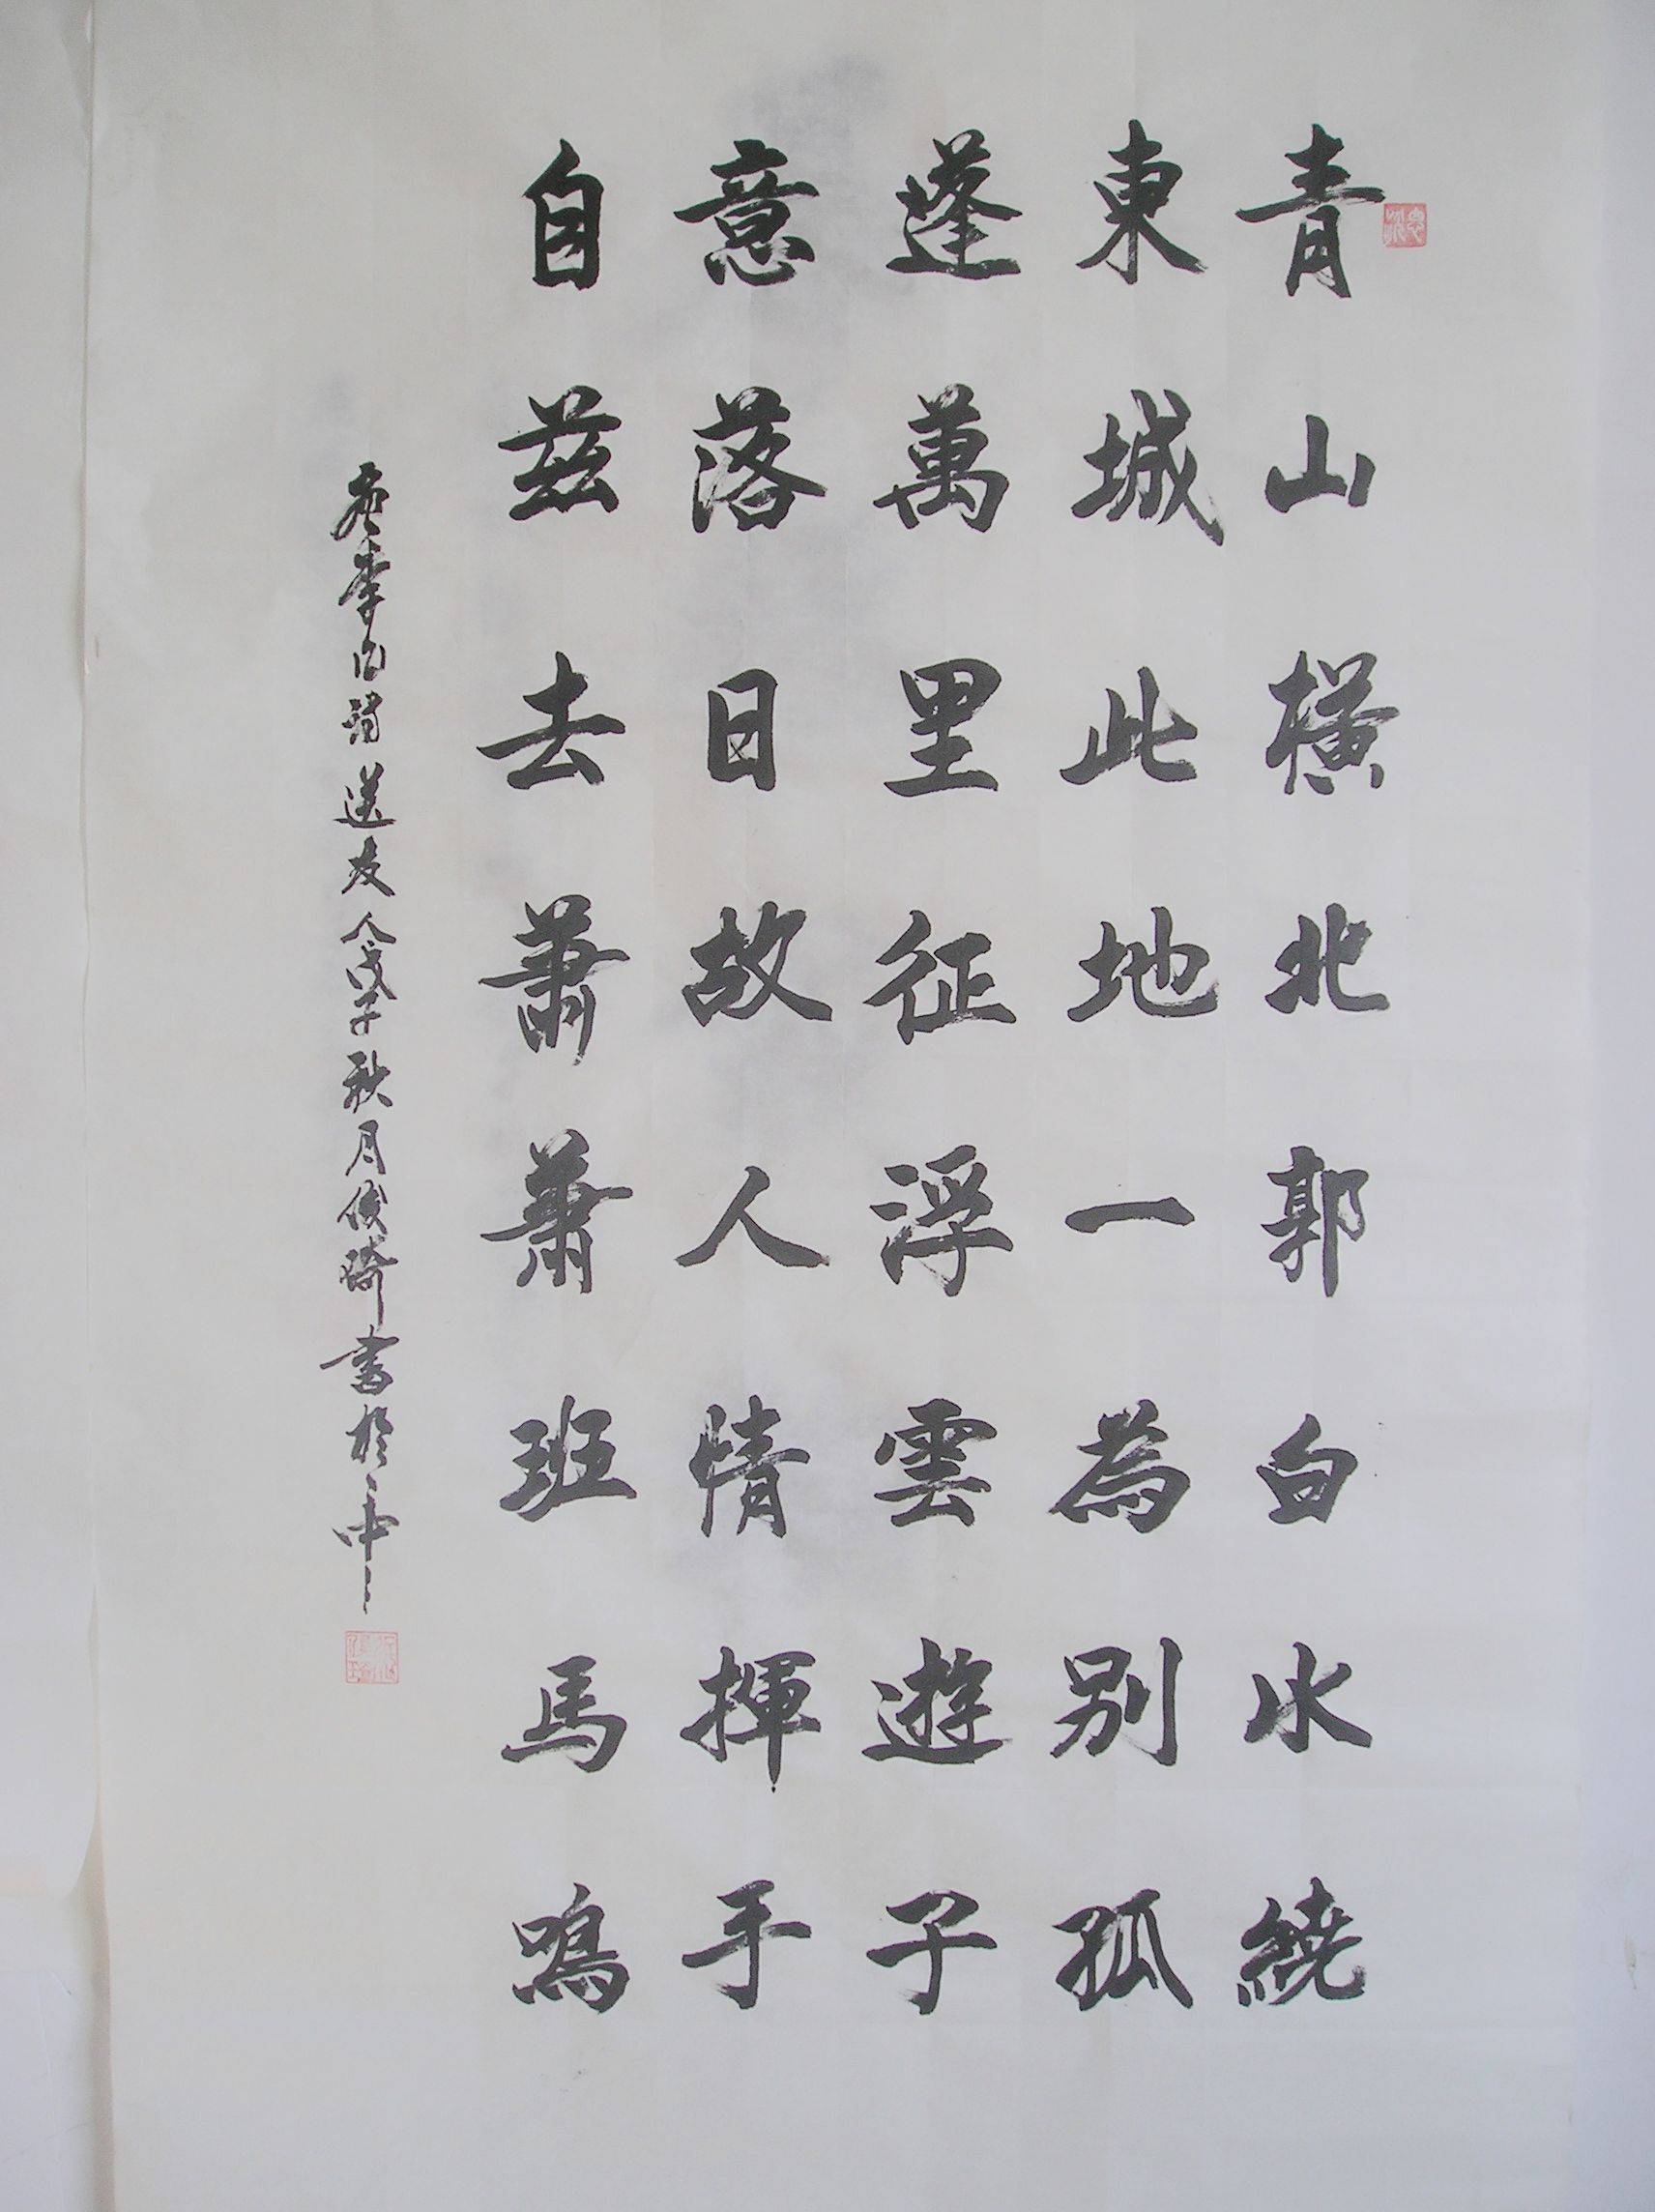 青山橫北郭白水繞
東城此地一為別孤
蓬萬里征浮雲遊子
意落日故人情揮手
自茲去蕭蕭班馬鳴
李白詩送友人戊子秋月俊琦書於